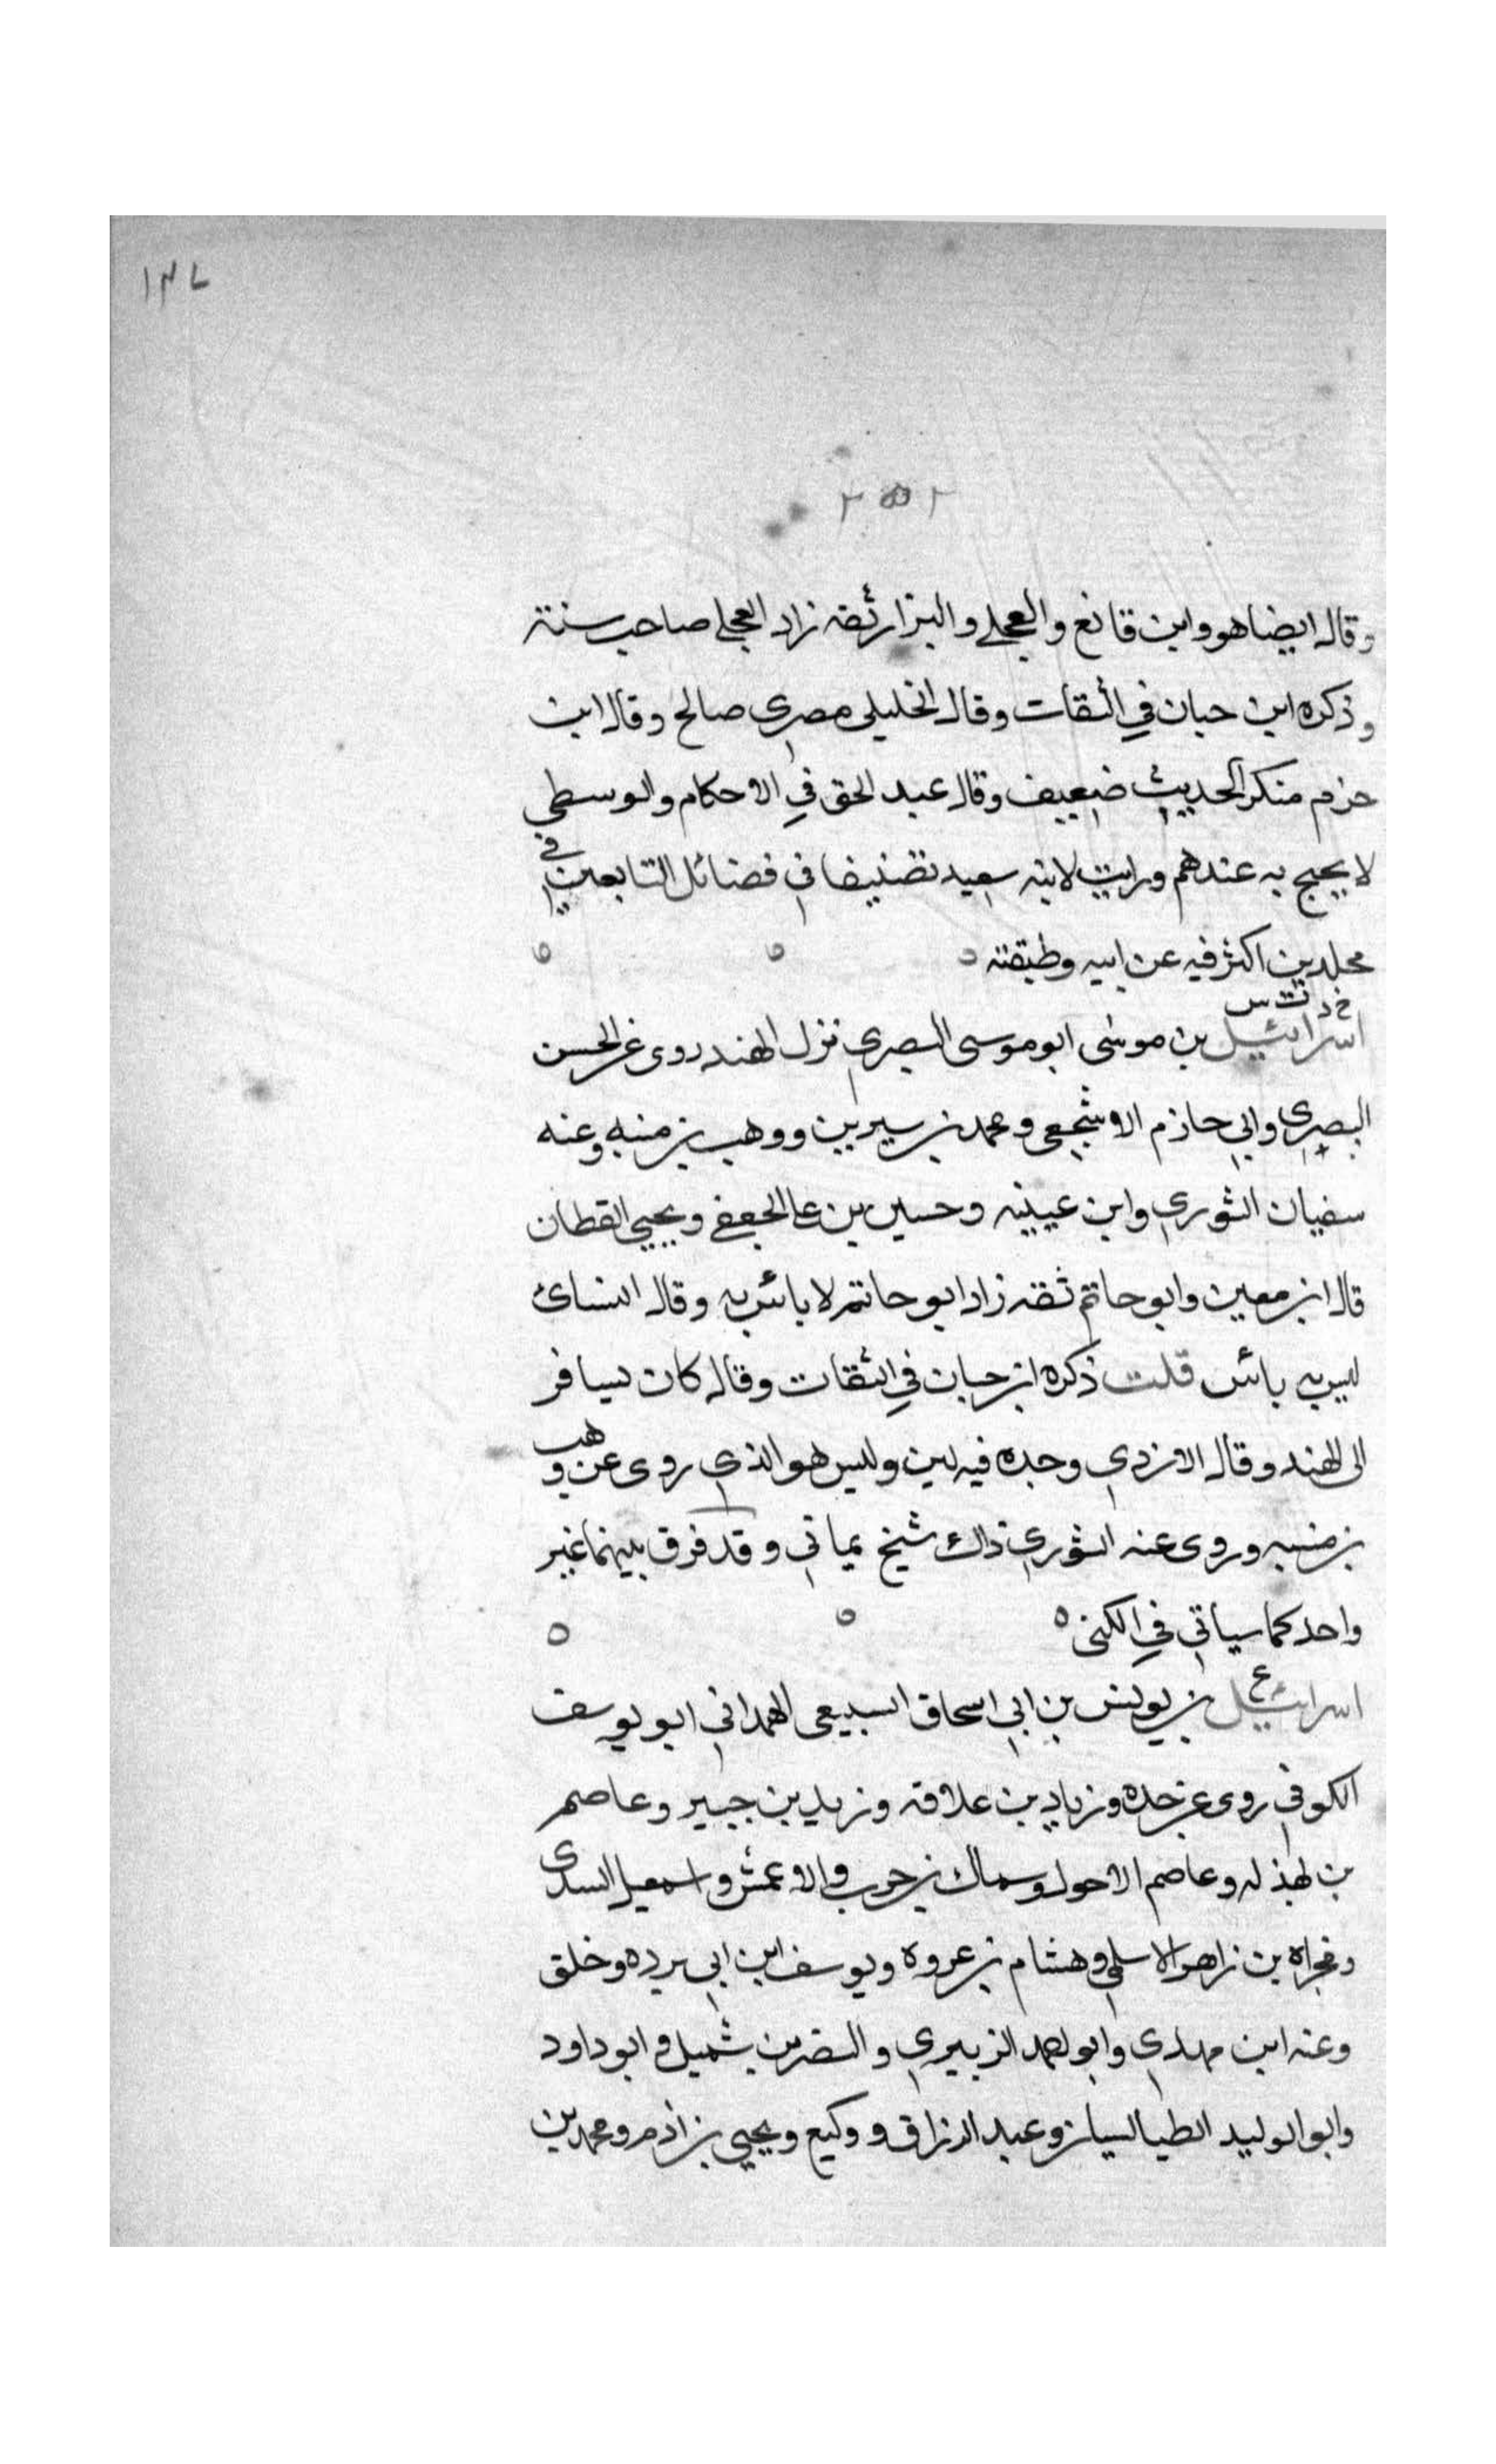 ١٣٧
٢٥٢
وقال ايضا هو وابن قانع والعجلي والبزار ثقه زاد العجلي صاحب سنة
وذكره ابن حبان في الثقات وقال الخليلي مصري صالح وقال ابن
حزم منكر الحديث ضعيف وقال عبد الحق في الاحكام والوسطي
لا يحتج به عندهم ورايت لابنه سعيد تصنيفا في فضائل التابعين في
مجلدين اكثر فيه عن ابيه وطبقته
خ د ت س
اسرائيل بن موسى ابو موسى البصري نزل الهند روى عن الحسن
البصري وابي حازم الاشجعي ومحمد بن سيرين ووهب بن منبه وعنه
سفيان الثوري وابن عيينه وحسين بن علي الجعفي ويحيي القطان
قال ابن معين وابو حاتم ثقه زاد ابو حاتم لا بائس به وقال النسائ
ليس به بائس قلت ذكره ابن حبان في الثقات وقال كان يسافر
الى الهند وقال الازدي وحده فيه لين وليس هو الذي روى عن وهب
بن منبه وروى عنه الثوري ذاك شيخ يماني وقد فرق بينهما غير
واحد كما سياتي في الكنى
ع
اسرائيل بن يونس بن ابي اسحاق السبيعي الهمداني ابو يوسف
الكوفي روى عن جده وزياد بن علاقه وزيد بن جبير وعاصم
بن بهذله وعاصم الاحول وسماك بن حرب والاعمش واسمعيل السدى
ومجزاه بن زاهر الاسلمي وهشام بن عروه ويوسف ابن ابي برده وخلق
وعنه ابن مهدي وابو احمد الزبيري والنضر بن شميل وابو داود
وابو الوليد الطيالسيان وعبد الرزاق ووكيع ويحيي بن ادم ومحمد بن